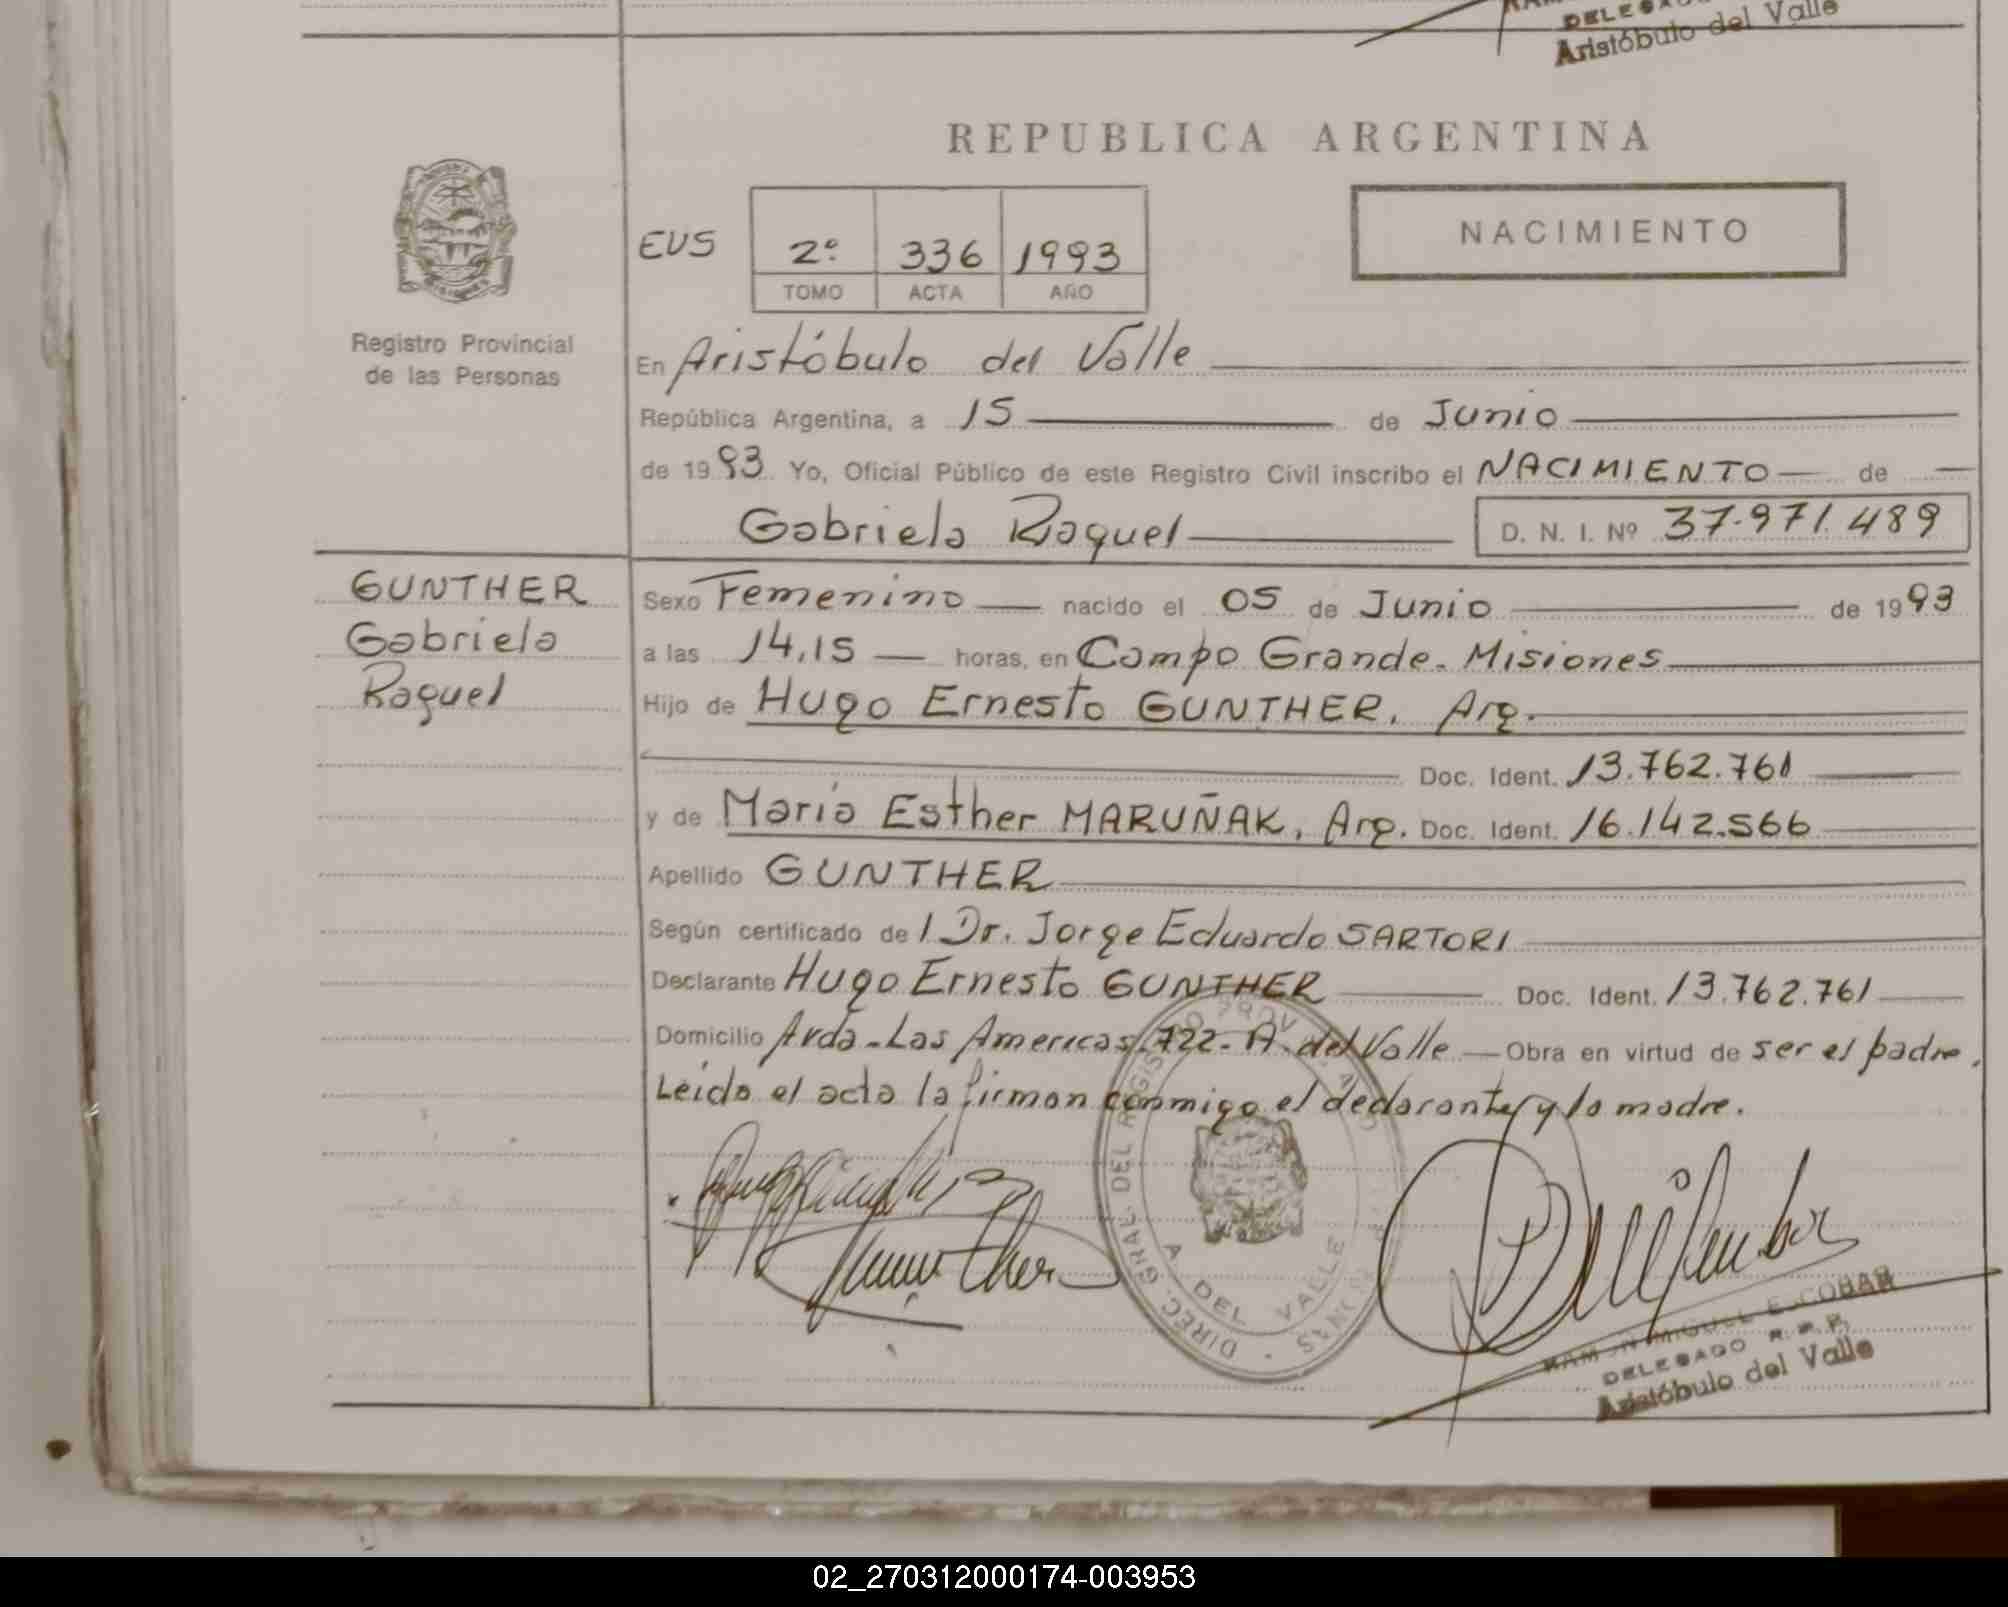 DELEGADO
Aristóbulo del Valle
REPUBLICA ARGENTINA
NACIMIENTO
EUS 2º 336 1993
TOMO ACTA AÑO
Registro Provincial
de las Personas
En Aristóbulo del Valle
República Argentina, a 15 de Junio
de 1993 Yo, Oficial Público de este Registro Civil inscribo el NACIMIENTO de
Gabriela Raquel D. N. I. Nº 37.971.489
GUNTHER
Gabriela
Raquel
Sexo Femenino nacido el 05 de Junio de 1993
a las 14,15 horas, en Campo Grande - Misiones
Hijo de Hugo Ernesto GUNTHER, Arg.
Doc. Ident. 13.762.761
y de María Esther MARUÑAK, Arg. Doc. Ident. 16.142.566
Apellido GUNTHER
Según certificado del Dr. Jorge Eduardo SARTORI
Declarante Hugo Ernesto GUNTHER Doc. Ident. 13.762.761
Domicilio Avda. Las Americas 722 - A. del Valle Obra en virtud de ser el padre.
Leída el acta la firman conmigo el declarante y la madre.
DIREC. GRAL. DEL REGISTRO
A DEL VALLE
RAMON MIGUEL ESCOBAR
DELEGADO R. P. P.
Aristóbulo del Valle
02_270312000174-003953